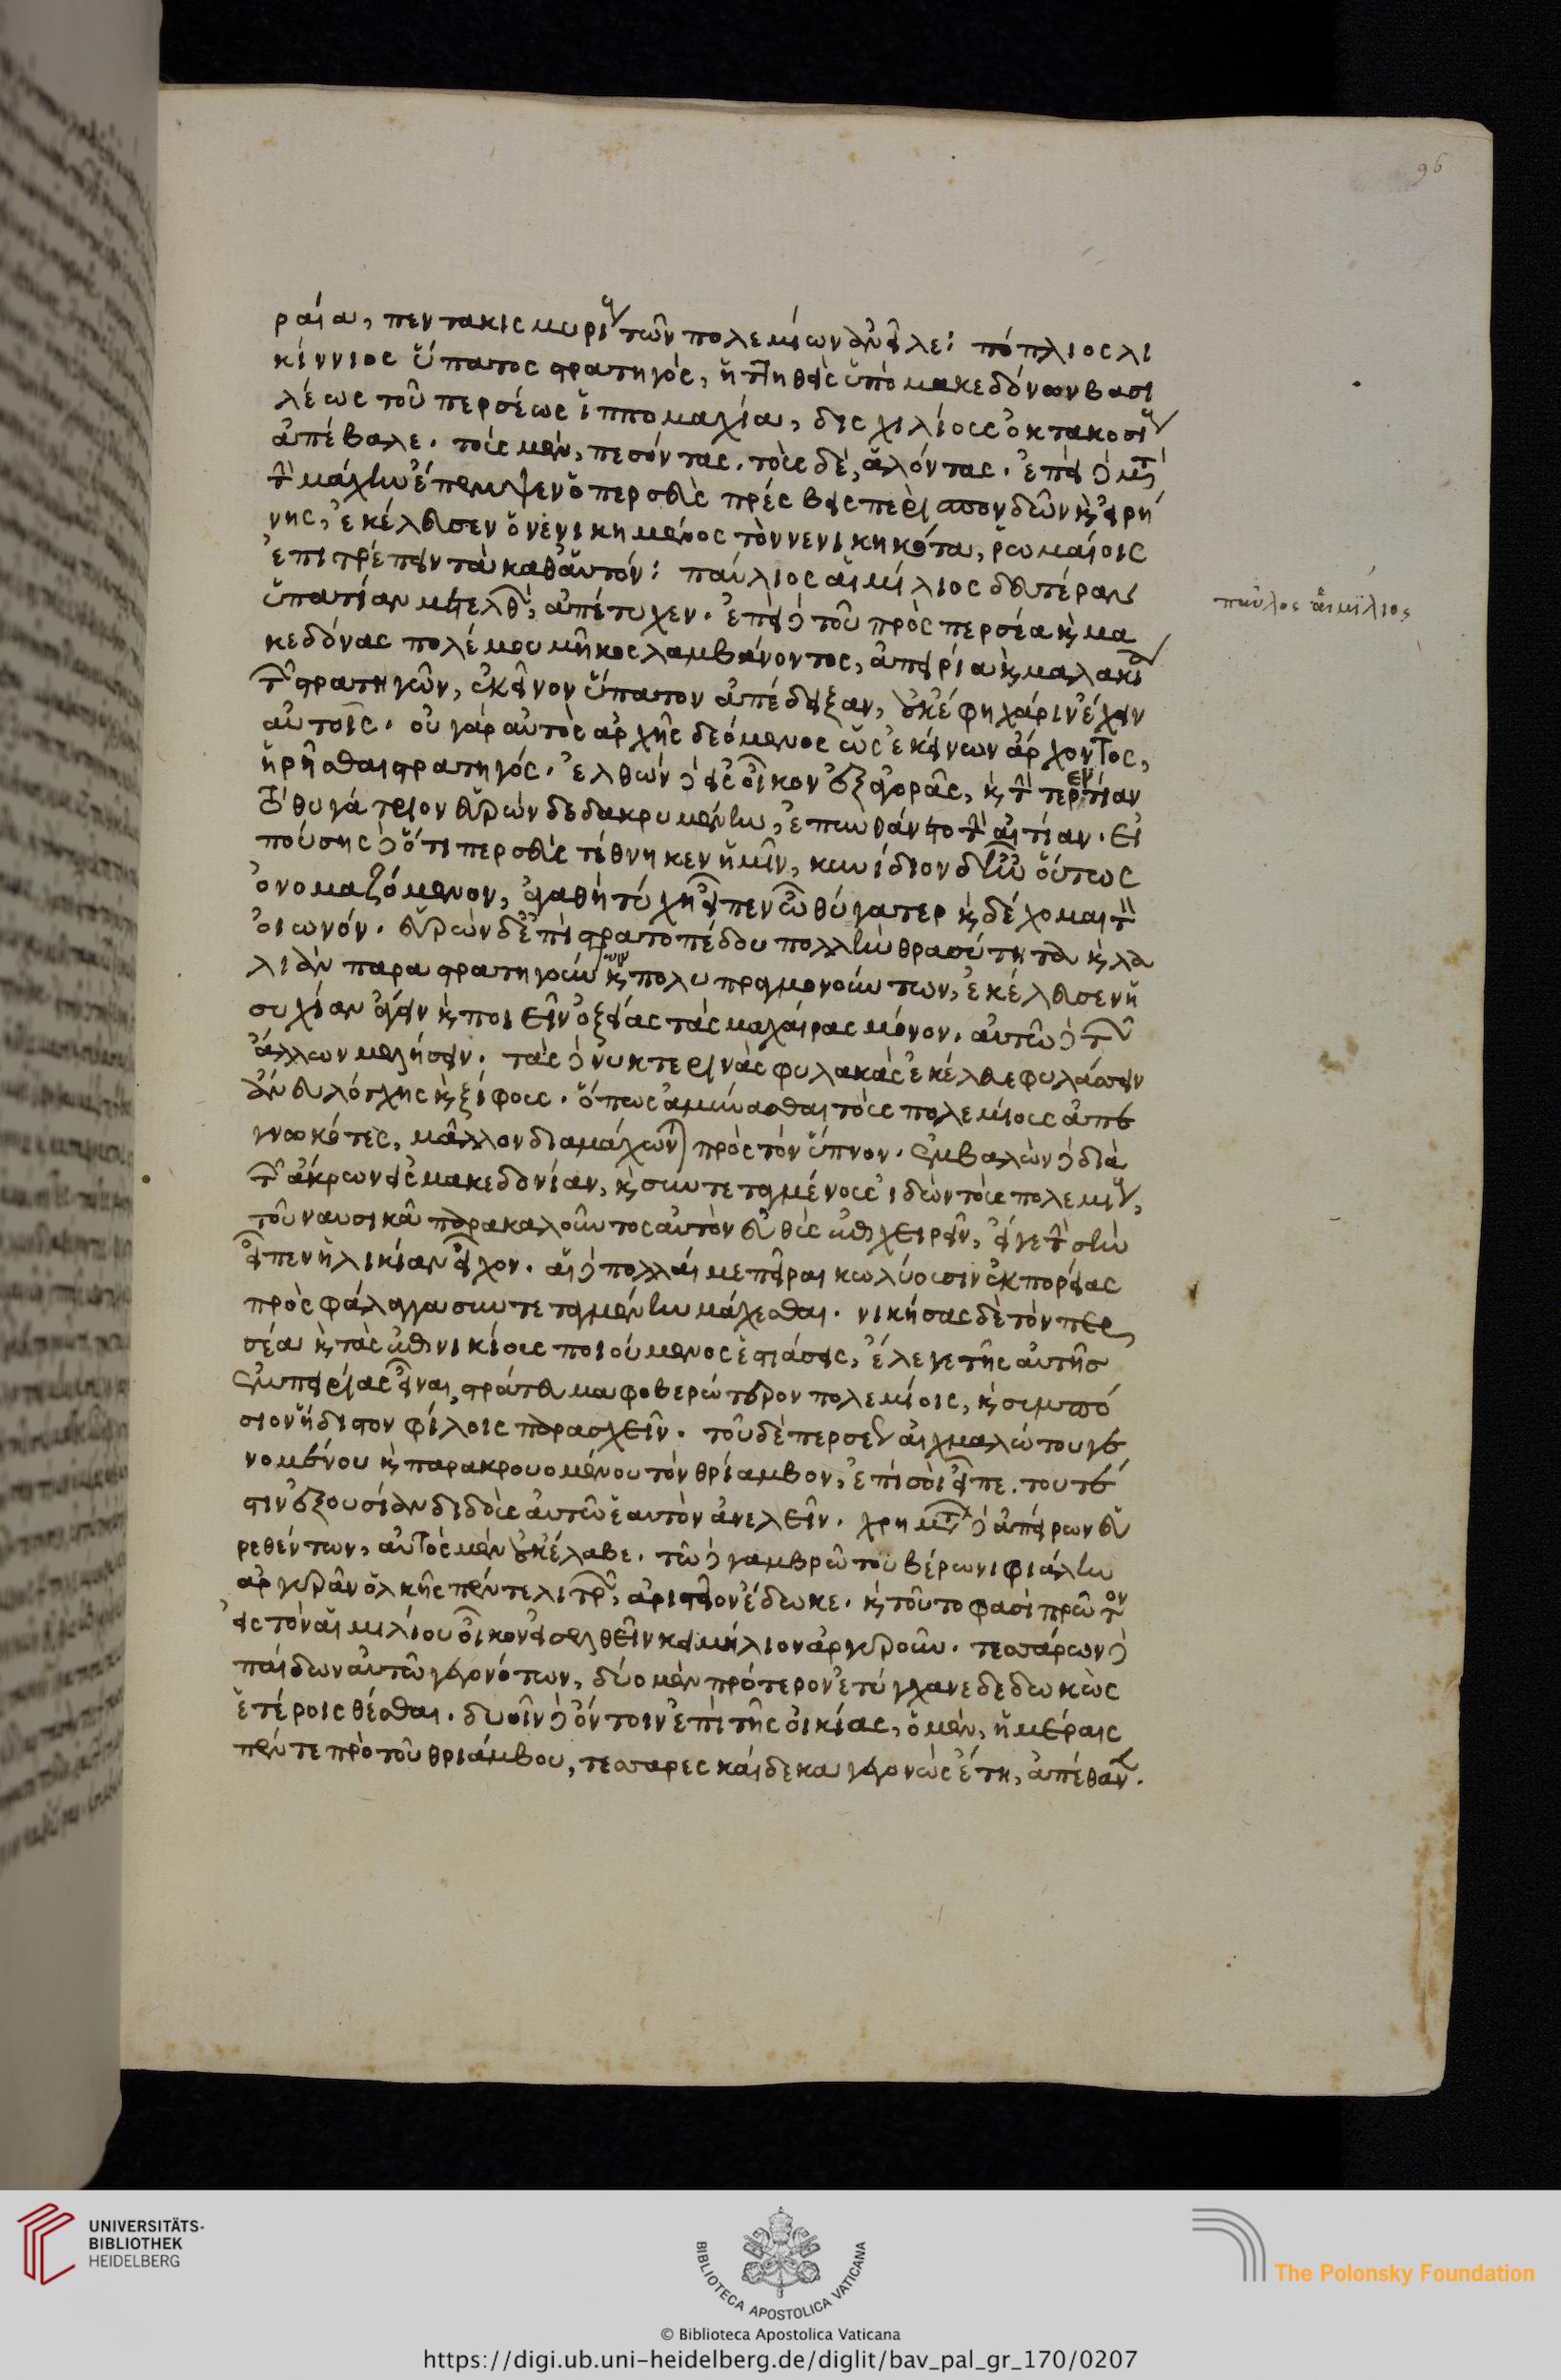 96
ραία, πεντακισμυρίους τῶν πολεμίων ἀνεῖλε: πόπλιος λι
κίννιος ὕπατος στρατηγός, ἡττηθεὶς ὑπὸ μακεδόνων βασι
λέως τοῦ περσέως ἱππομαχία, δισχιλίους ὀκτακοσίους
ἀπέβαλε. τοὺς μὲν, πεσόντας. τοὺς δὲ, ἁλόντας. ἐπεὶ δὲ μετὰ
τὴν μάχην ἔπεμψεν ὁ περσεὺς πρέσβεις περὶ σπονδῶν καὶ εἰρή
νης, ἐκέλευσεν ὁ νενικημένος τὸν νενικηκότα, ῥωμαίοις
ἐπιτρέπειν τὰ καθ' αὑτόν: παύλιος αἰμίλιος δευτέραν
παῦλος αἰμίλιος
ὑπατίαν μετελθὼν, ἀπέτυχεν. ἐπεὶ δὲ τοῦ πρὸς περσέα καὶ μα
κεδόνας πολέμου μῆκος λαμβάνοντος, ἀπειρία καὶ μαλακία
τῶν στρατηγῶν, ἐκεῖνον ὕπατον ἀπέδειξαν, οὐκ ἔφη χάριν ἔχειν
αὐτοῖς. οὐ γὰρ αὐτὸς ἀρχῆς δεόμενος ὡς ἐκείνων ἄρχοντος,
ᾑρῆσθαι στρατηγός. ἐλθὼν δὲ εἰς οἶκον ἐξ ἀγορᾶς, καὶ τὴν τερεντίαν
τὸ θυγάτριον εὑρὼν δεδακρυμένην, ἐπυνθάνετο τὴν αἰτίαν. εἰ
πούσης δὲ ὅτι περσεὺς τέθνηκεν ἡμῖν, κυνίδιον δ' ἦν οὕτως
ὀνομαζόμενον, ἀγαθῆ τύχη εἶπεν ὦ θύγατερ καὶ δέχομαι τὸν
οἰωνόν. εὑρὼν δ' ἐπὶ στρατοπέδου πολλὴν θρασύτητα καὶ λα
λιὰν παραστρατηγούντων καὶ πολυπραγμονούντων, ἐκέλευσεν ἡ
συχίαν ἄγειν καὶ ποιεῖν ὀξείας τὰς μαχαίρας μόνον. αὐτῶ δὲ τῶν
ἄλλων μελήσειν. τὰς δὲ νυκτερινὰς φυλακὰς ἐκέλευε φυλάσσειν
ἄνευ λόγχης καὶ ξίφους. ὅπως ἀμύνασθαι τοὺς πολεμίους ἀπε
γνωκότες, μᾶλλον διαμάχωνται πρὸς τὸν ὕπνον. ἐμβαλὼν δὲ διὰ
τῶν ἄκρων εἰς μακεδονίαν, καὶ συντεταγμένους ἰδὼν τοὺς πολεμίους,
τοῦ νασικᾶ παρακαλοῦντος αὐτὸν εὐθὺς ἐπιχειρεῖν, εἴγε τὴν σὴν
εἶπεν ἡλικίαν εἶχον. αἱ δὲ πολλαί με πεῖραι κωλύουσιν ἐκ πορείας
πρὸς φάλαγγα συντεταγμένην μάχεσθαι. νικήσας δὲ τὸν περ
σέα καὶ τὰς ἐπινικίους ποιούμενος ἑστιάσεις, ἔλεγε τῆς αὐτῆς
ἐμπειρίας εἶναι, στράτευμα φοβερώτερον πολεμίοις, καὶ συμπό
σιον ἥδιστον φίλοις παρασχεῖν. τοῦ δὲ περσέως αἰχμαλώτου γε
νομένου καὶ παρακρουομένου τὸν θρίαμβον, ἐπὶ σοὶ εἶπε. τοῦτ' ἔ
στιν ἐξουσίαν διδοὺς αὐτῶ ἑαυτὸν ἀνελεῖν. χρημάτων δὲ ἀπείρων εὑ
ρεθέντων, αὐτὸς μὲν οὐκ ἔλαβε. τῶ δὲ γαμβρῶ τουβέρωνι φιάλην
ἀργυρᾶν ὁλκῆς πέντε λιτρῶν, ἀριστεῖον ἔδωκε. καὶ τοῦτο φασὶ πρῶτον
εἰς τὸν αἰμιλίου οἶκον εἰσελθεῖν κειμήλιον ἀργυροῦν. τεσσάρων δὲ
παίδων αὐτῶ γεγονότων, δύο μὲν πρότερον ἐτύγχανε δεδωκὼς
ἑτέροις θέσθαι. δυοῖν δὲ ὄντοιν ἐπὶ τῆς οἰκίας, ὁ μὲν, ἡμέραις
πέντε πρὸ τοῦ θριάμβου, τεσσαρεσκαίδεκα γεγονὼς ἔτη, ἀπέθανε.
UNIVERSITÄTS-
BIBLIOTHEK
HEIDELBERG
BIBLIOTECA APOSTOLICA VATICANA
The Polonsky Foundation
© Biblioteca Apostolica Vaticana
https://digi.ub.uni-heidelberg.de/diglit/bav_pal_gr_170/0207